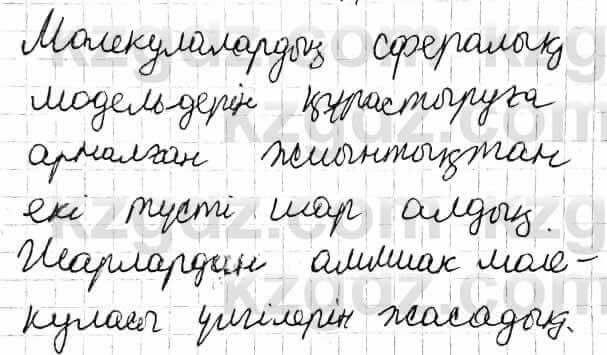 Молекулалардың сфералық
модельдерін құрастыруға
арналған жиынтықтан
екі түсті шар алдық.
Шарлардан аммиак моле-
куласы үлгілерін жасадық.